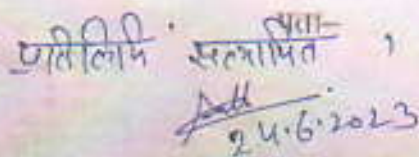 प्रतिलिपि सत्यापित,
24.6.2023